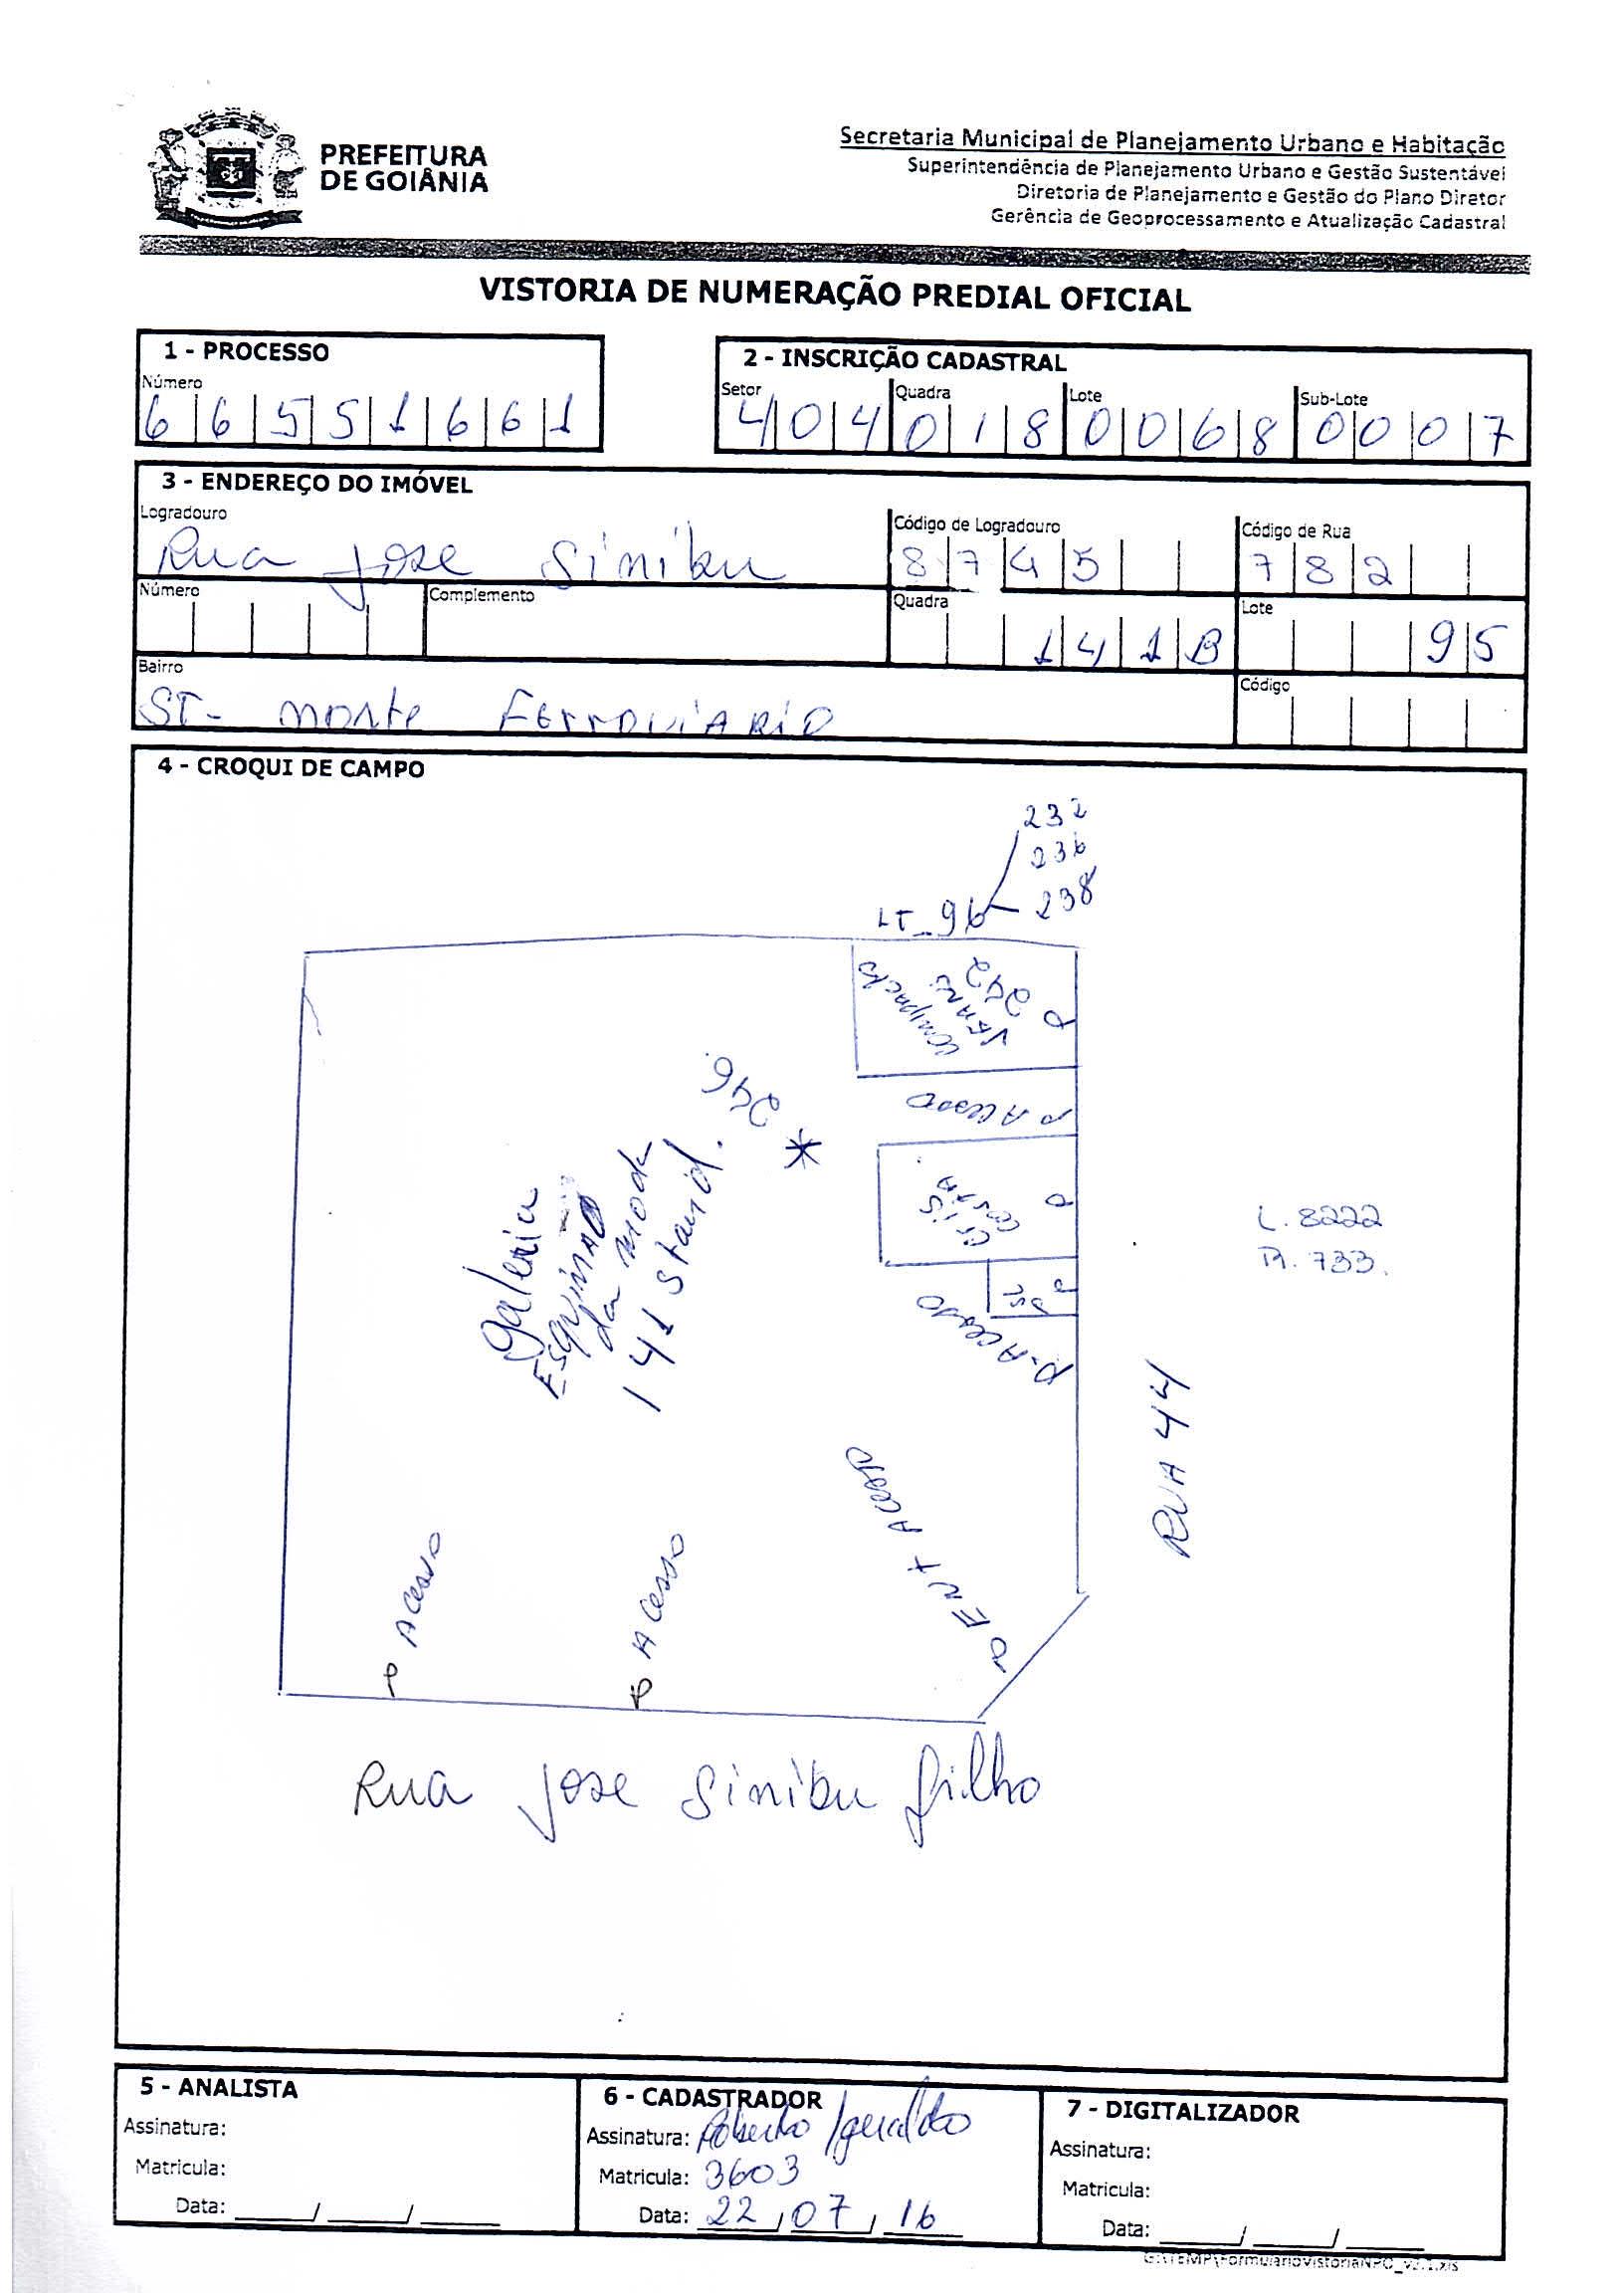 PREFEITURA
DE GOIÂNIA
Secretaria Municipal de Planejamento Urbano e Habitação
Superintendência de Planejamento Urbano e Gestão Sustentável
Diretoria de Planejamento e Gestão do Plano Diretor
Gerência de Geoprocessamento e Atualização Cadastral
VISTORIA DE NUMERAÇÃO PREDIAL OFICIAL
1 - PROCESSO
Número
66551661
2 - INSCRIÇÃO CADASTRAL
Setor Quadra Lote Sub-Lote
404 018 0068 0007
3 - ENDEREÇO DO IMÓVEL
Logradouro
Rua Jose Sinibu
Código de Logradouro
8745
Código de Rua
782
Número
Complemento
Quadra
141B
Lote
95
Bairro
ST- Norte Ferroviario
Código
4 - CROQUI DE CAMPO
232
236
238
LT_96
P
242
compacto
P Acesso
246
*
P
Cris
Costa
P
P-Acesso
galeria
Esquinão
da moda
141 Stand.
L. 8222
R. 733.
RUA 44
P Acesso
P Acesso
P ENT Acesso
Rua Jose Sinibu filho
5 - ANALISTA
Assinatura:
Matricula:
Data: ____/____/____
6 - CADASTRADOR
Assinatura: Roberto/geraldo
Matricula: 3603
Data: 22/07/16
7 - DIGITALIZADOR
Assinatura:
Matricula:
Data: ____/____/____